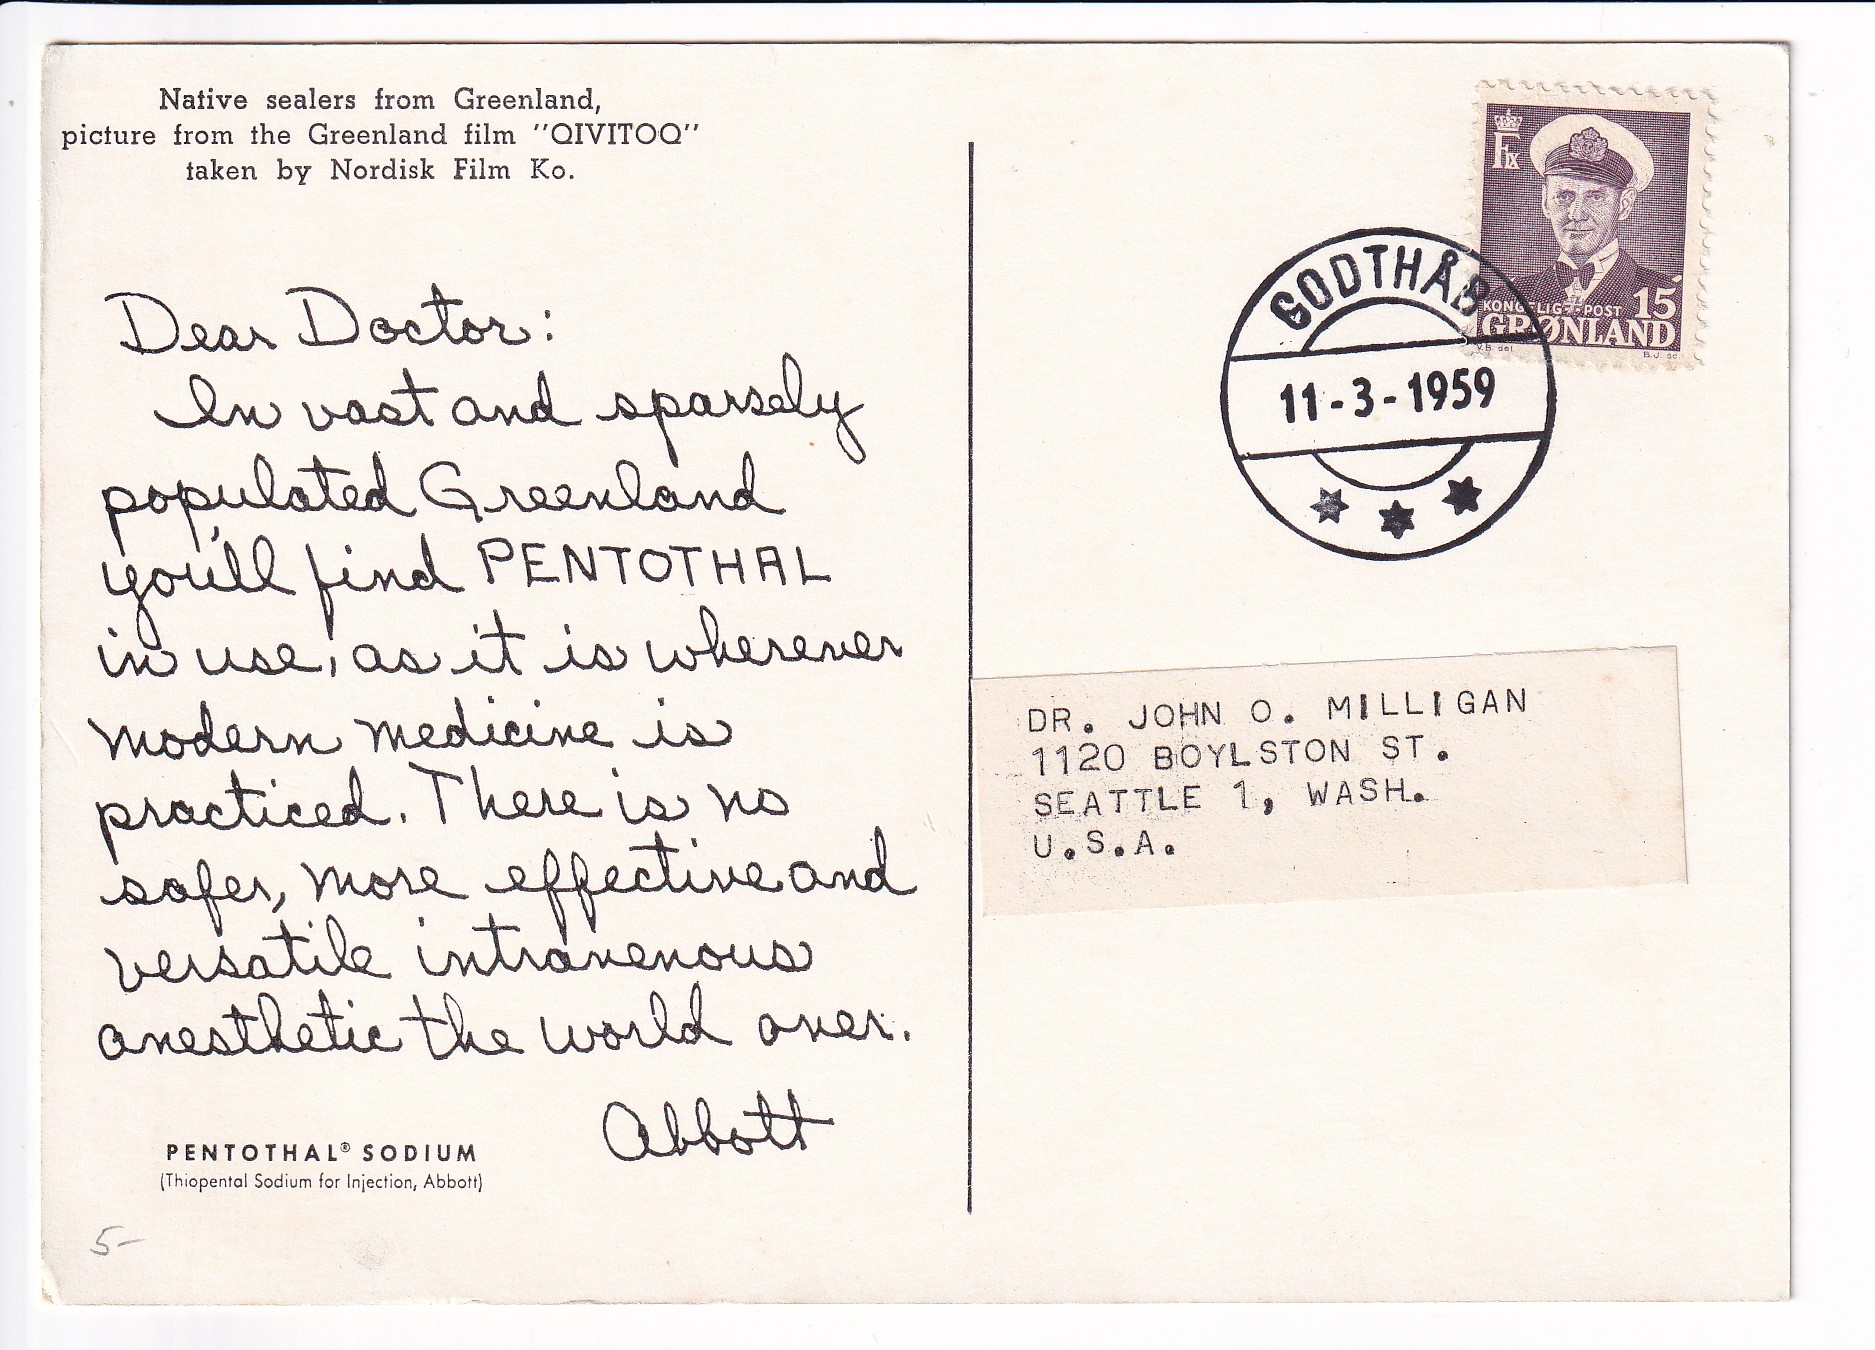 Native sealers from Greenland,
picture from the Greenland film "QIVITOQ"
taken by Nordisk Film Ko.
Dear Doctor:
In vast and sparsely
populated Greenland
you'll find PENTOTHAL
in use, as it is wherever
modern medicine is
practiced. There is no
safer, more effective and
versatile intravenous
anesthetic the world over.
Abbott
PENTOTHAL® SODIUM
(Thiopental Sodium for Injection, Abbott)
5-
KONGELIG POST 15
GRØNLAND
V.B. del. B.J. sc.
GODTHÅB
11-3-1959
DR. JOHN O. MILLIGAN
1120 BOYLSTON ST.
SEATTLE 1, WASH.
U.S.A.